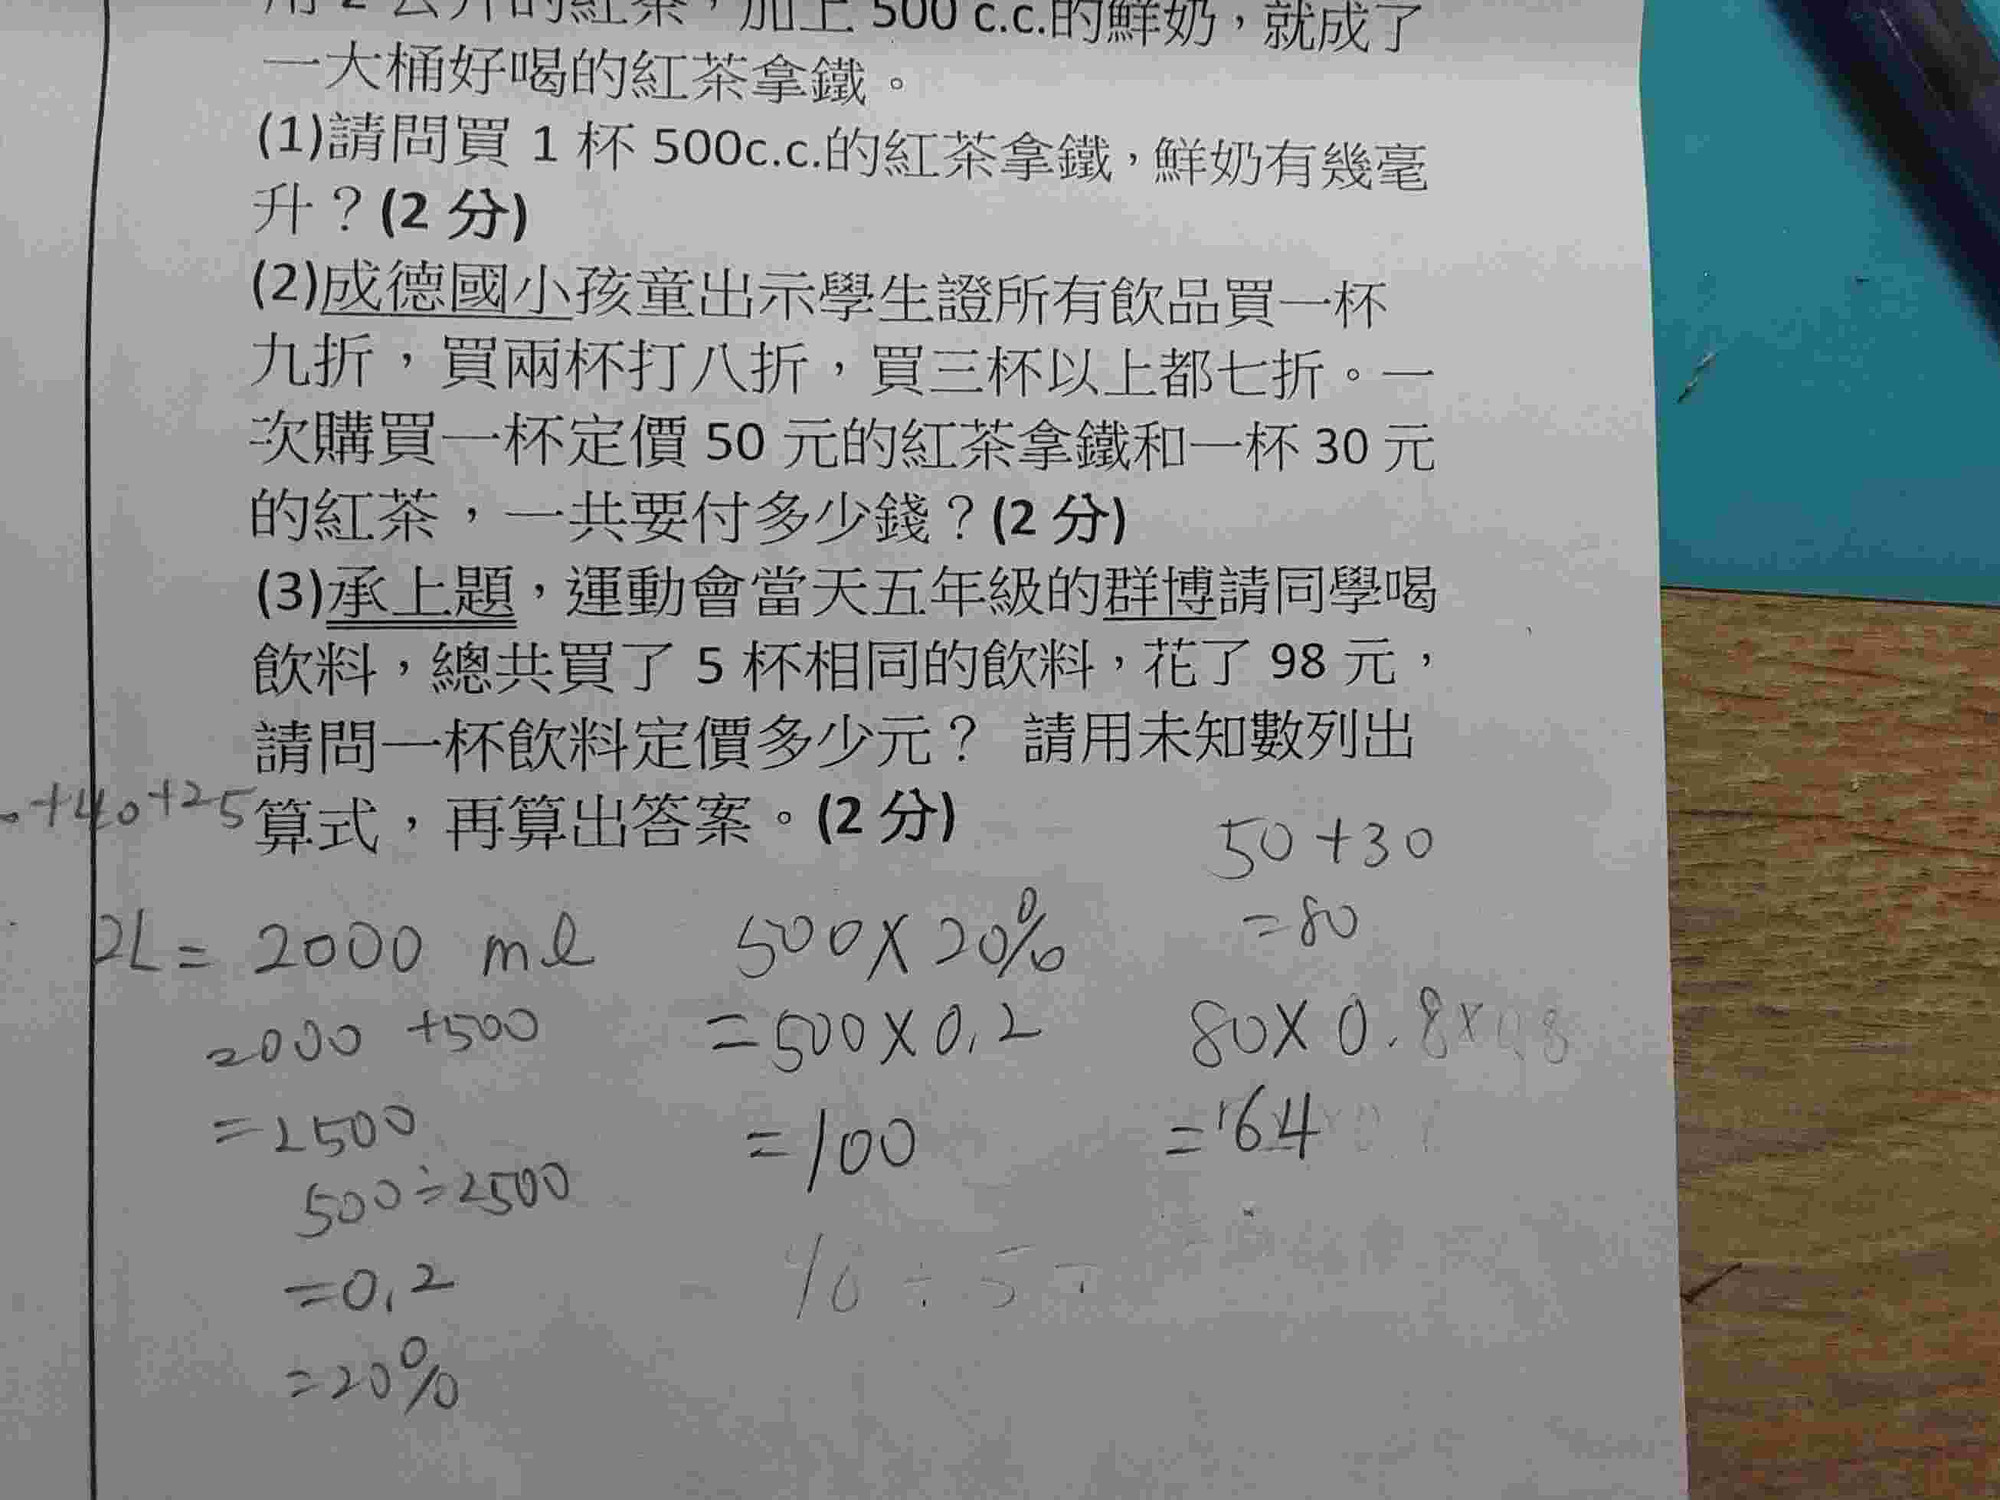 用 2 公升的紅茶，加上 500 c.c.的鮮奶，就成了
一大桶好喝的紅茶拿鐵。
(1)請問買 1 杯 500c.c.的紅茶拿鐵，鮮奶有幾毫
升？(2 分)
(2)成德國小孩童出示學生證所有飲品買一杯
九折，買兩杯打八折，買三杯以上都七折。一
次購買一杯定價 50 元的紅茶拿鐵和一杯 30 元
的紅茶，一共要付多少錢？(2 分)
(3)承上題，運動會當天五年級的群博請同學喝
飲料，總共買了 5 杯相同的飲料，花了 98 元，
請問一杯飲料定價多少元？ 請用未知數列出
算式，再算出答案。(2 分)
+40+25
2L = 2000 ml
2000 +500
=2500
500÷2500
=0.2
=20%
500×20%
=500×0.2
=100
50+30
=80
80×0.8
=64